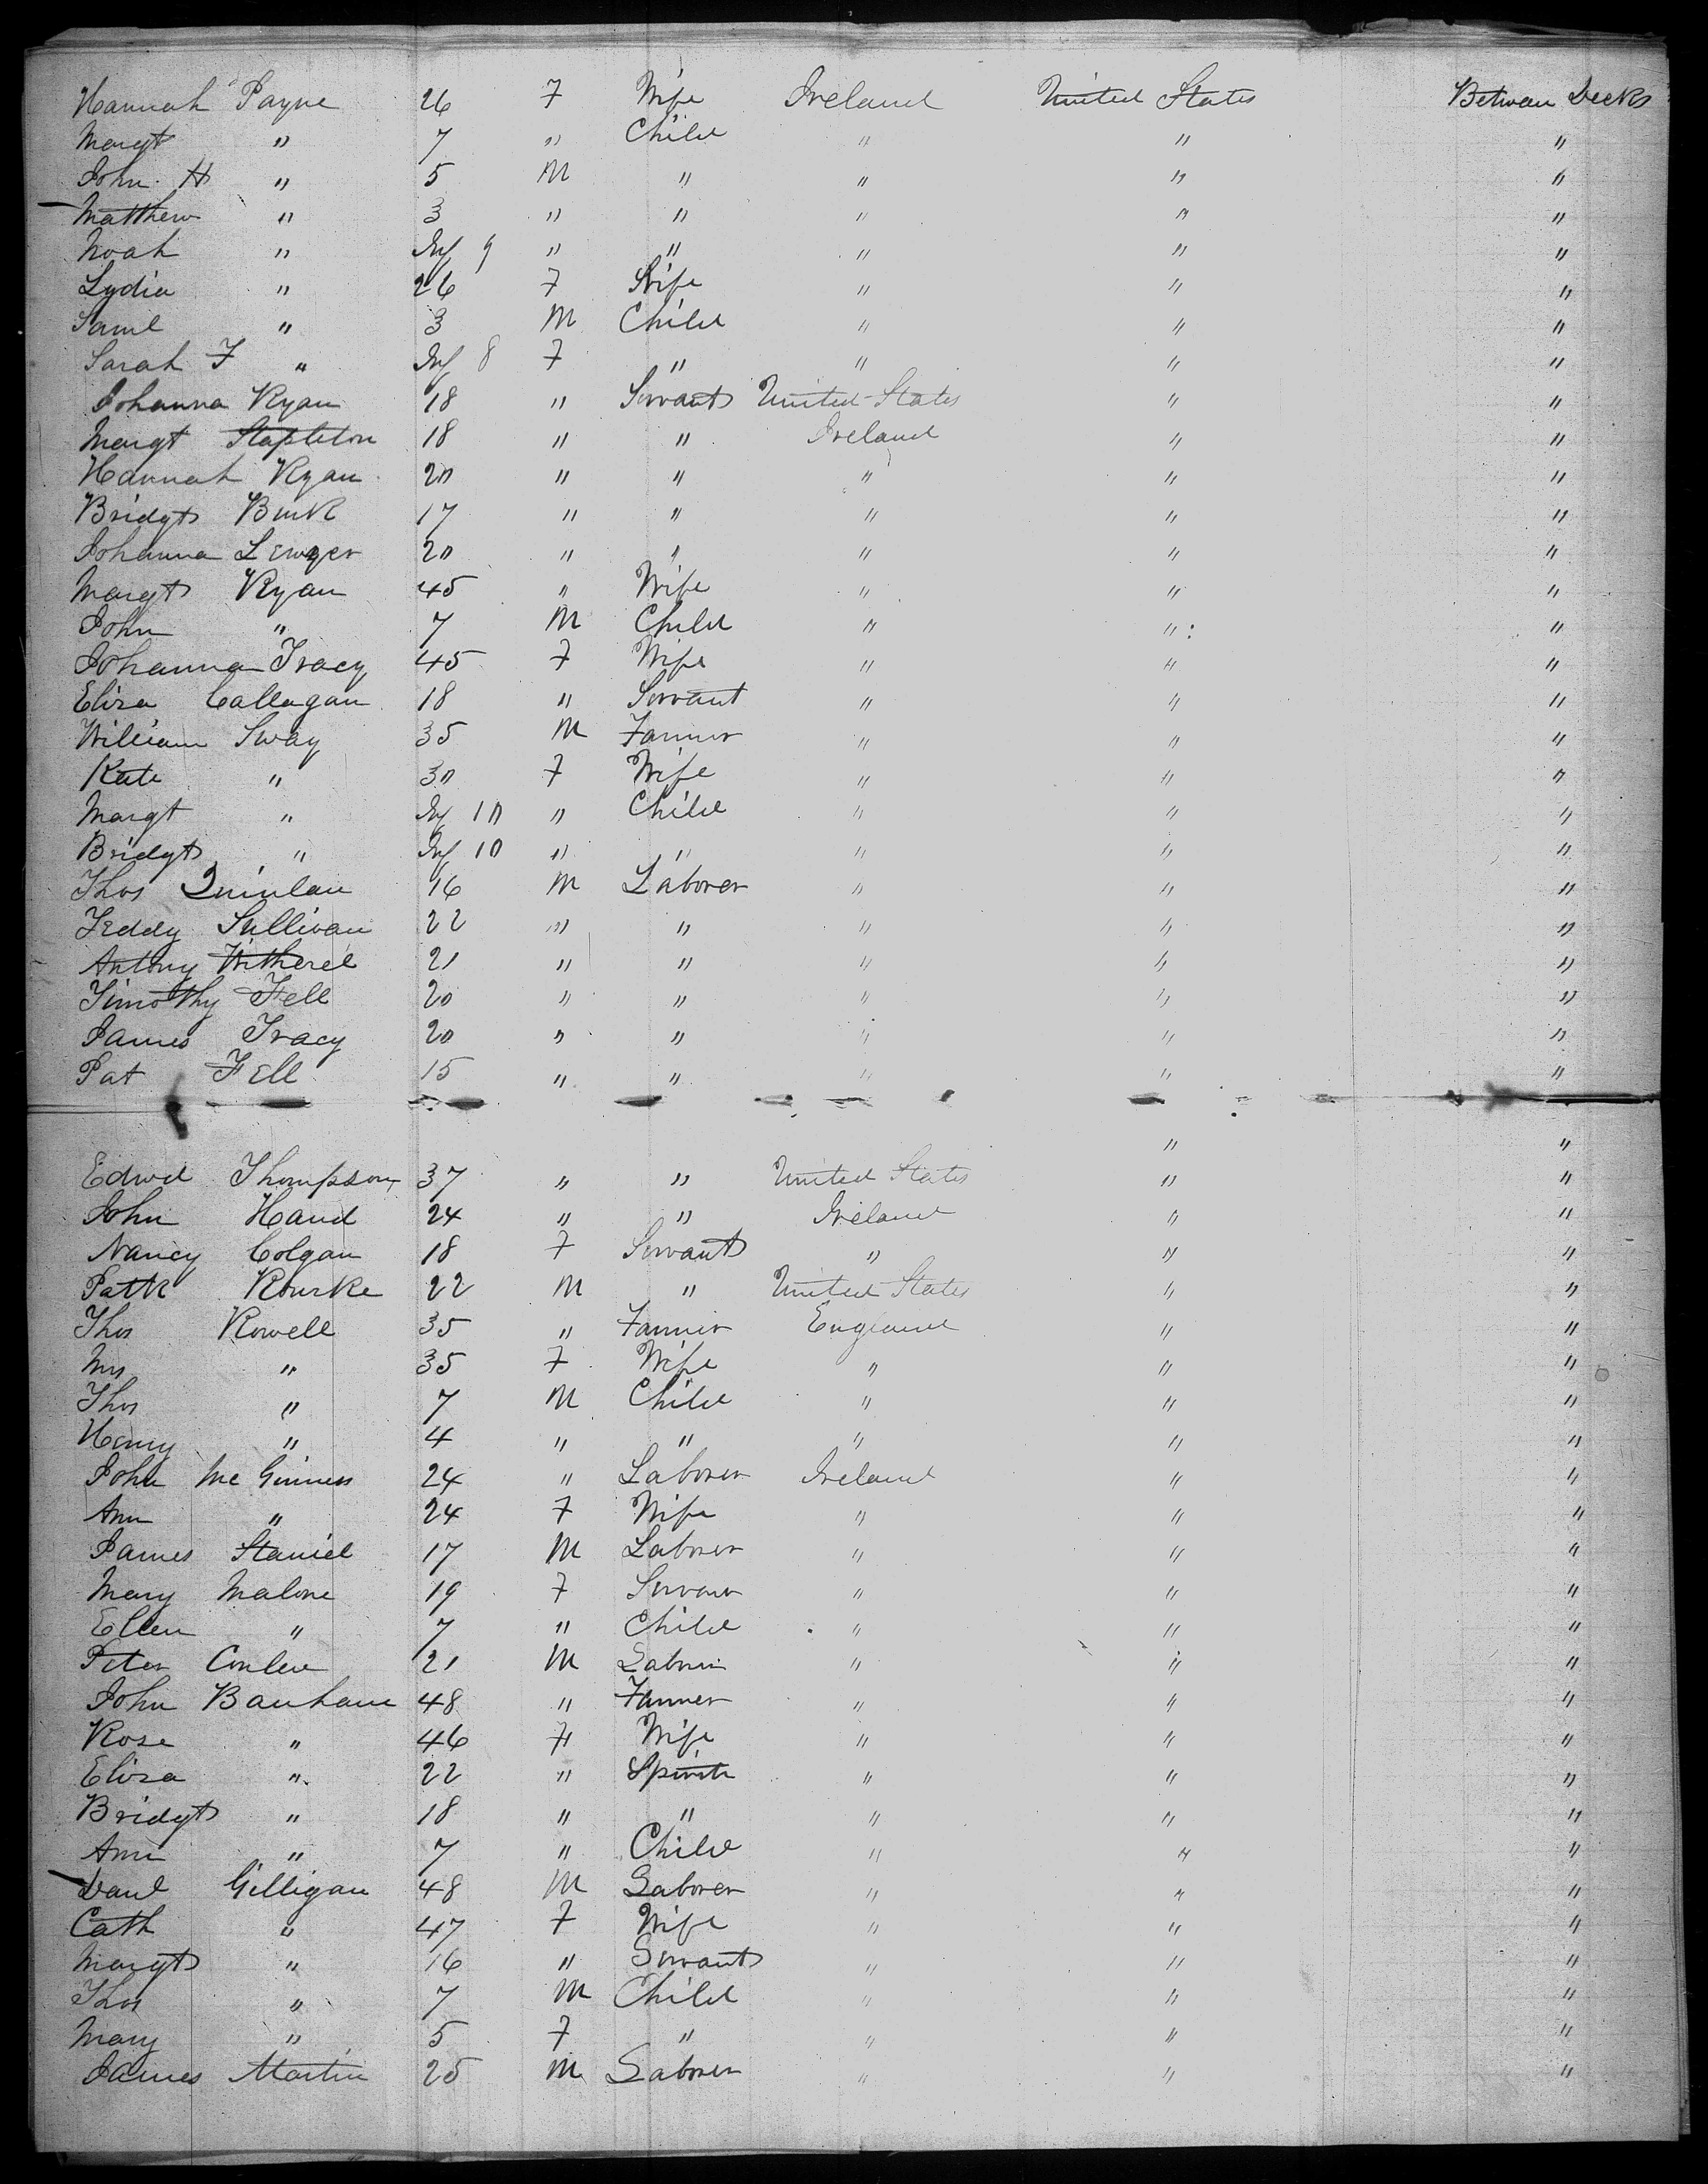 Hannah Payne 26 F Wife Ireland United States Between Decks
Margt " 7 " Child " " "
John H " 5 M " " " "
Matthew " 3 " " " " "
Noah " Inf 9 " " " " "
Lydia " 26 F Wife " " "
Saml " 3 M Child " " "
Sarah F " Inf 8 F " " " "
Johanna Ryan 18 " Servant United States " "
Margt Stapleton 18 " " Ireland " "
Hannah Ryan 20 " " " " "
Bridgt Burk 17 " " " " "
Johanna 20 " " " " "
Margt Ryan 45 " Wife " " "
John " 7 M Child " " "
Johanna Tracy 45 F Wife " " "
Eliza Callagan 18 " Servant " " "
William Sway 35 M Farmer " " "
Kate " 30 F Wife " " "
Margt " Inf 10 " Child " " "
Bridgt " Inf 10 " " " " "
Thos Quinlan 16 M Laborer " " "
Teddy Sullivan 22 " " " " "
Antony Witherel 21 " " " " "
Timothy Fell 20 " " " " "
James Tracy 20 " " " " "
Pat Fell 15 " " " " "
" "
Edwd Thompson 37 " " United States " "
John Hand 24 " " Ireland " "
Nancy Colgan 18 F Servant " " "
Patk Rourke 22 M " United States " "
Thos Rowell 35 " Farmer England " "
Mrs " 35 F Wife " " "
Thos " 7 M Child " " "
Henry " 4 " " " " "
John Mc Ginness 24 " Laborer Ireland " "
Ann " 24 F Wife " " "
James Staniel 17 M Laborer " " "
Mary Malone 19 F Servant " " "
Ellen " 7 " Child " " "
Peter 21 M Laborer " " "
John Banham 48 " Farmer " " "
Rose " 46 F Wife " " "
Eliza " 22 " Spinster " " "
Bridgt " 18 " " " " "
Ann " 7 " Child " " "
Danl Gilligan 48 M Laborer " " "
Cath " 47 F Wife " " "
Margt " 16 " Servant " " "
Thos " 7 M Child " " "
Mary " 5 F " " " "
James Martin 25 M Laborer " " "